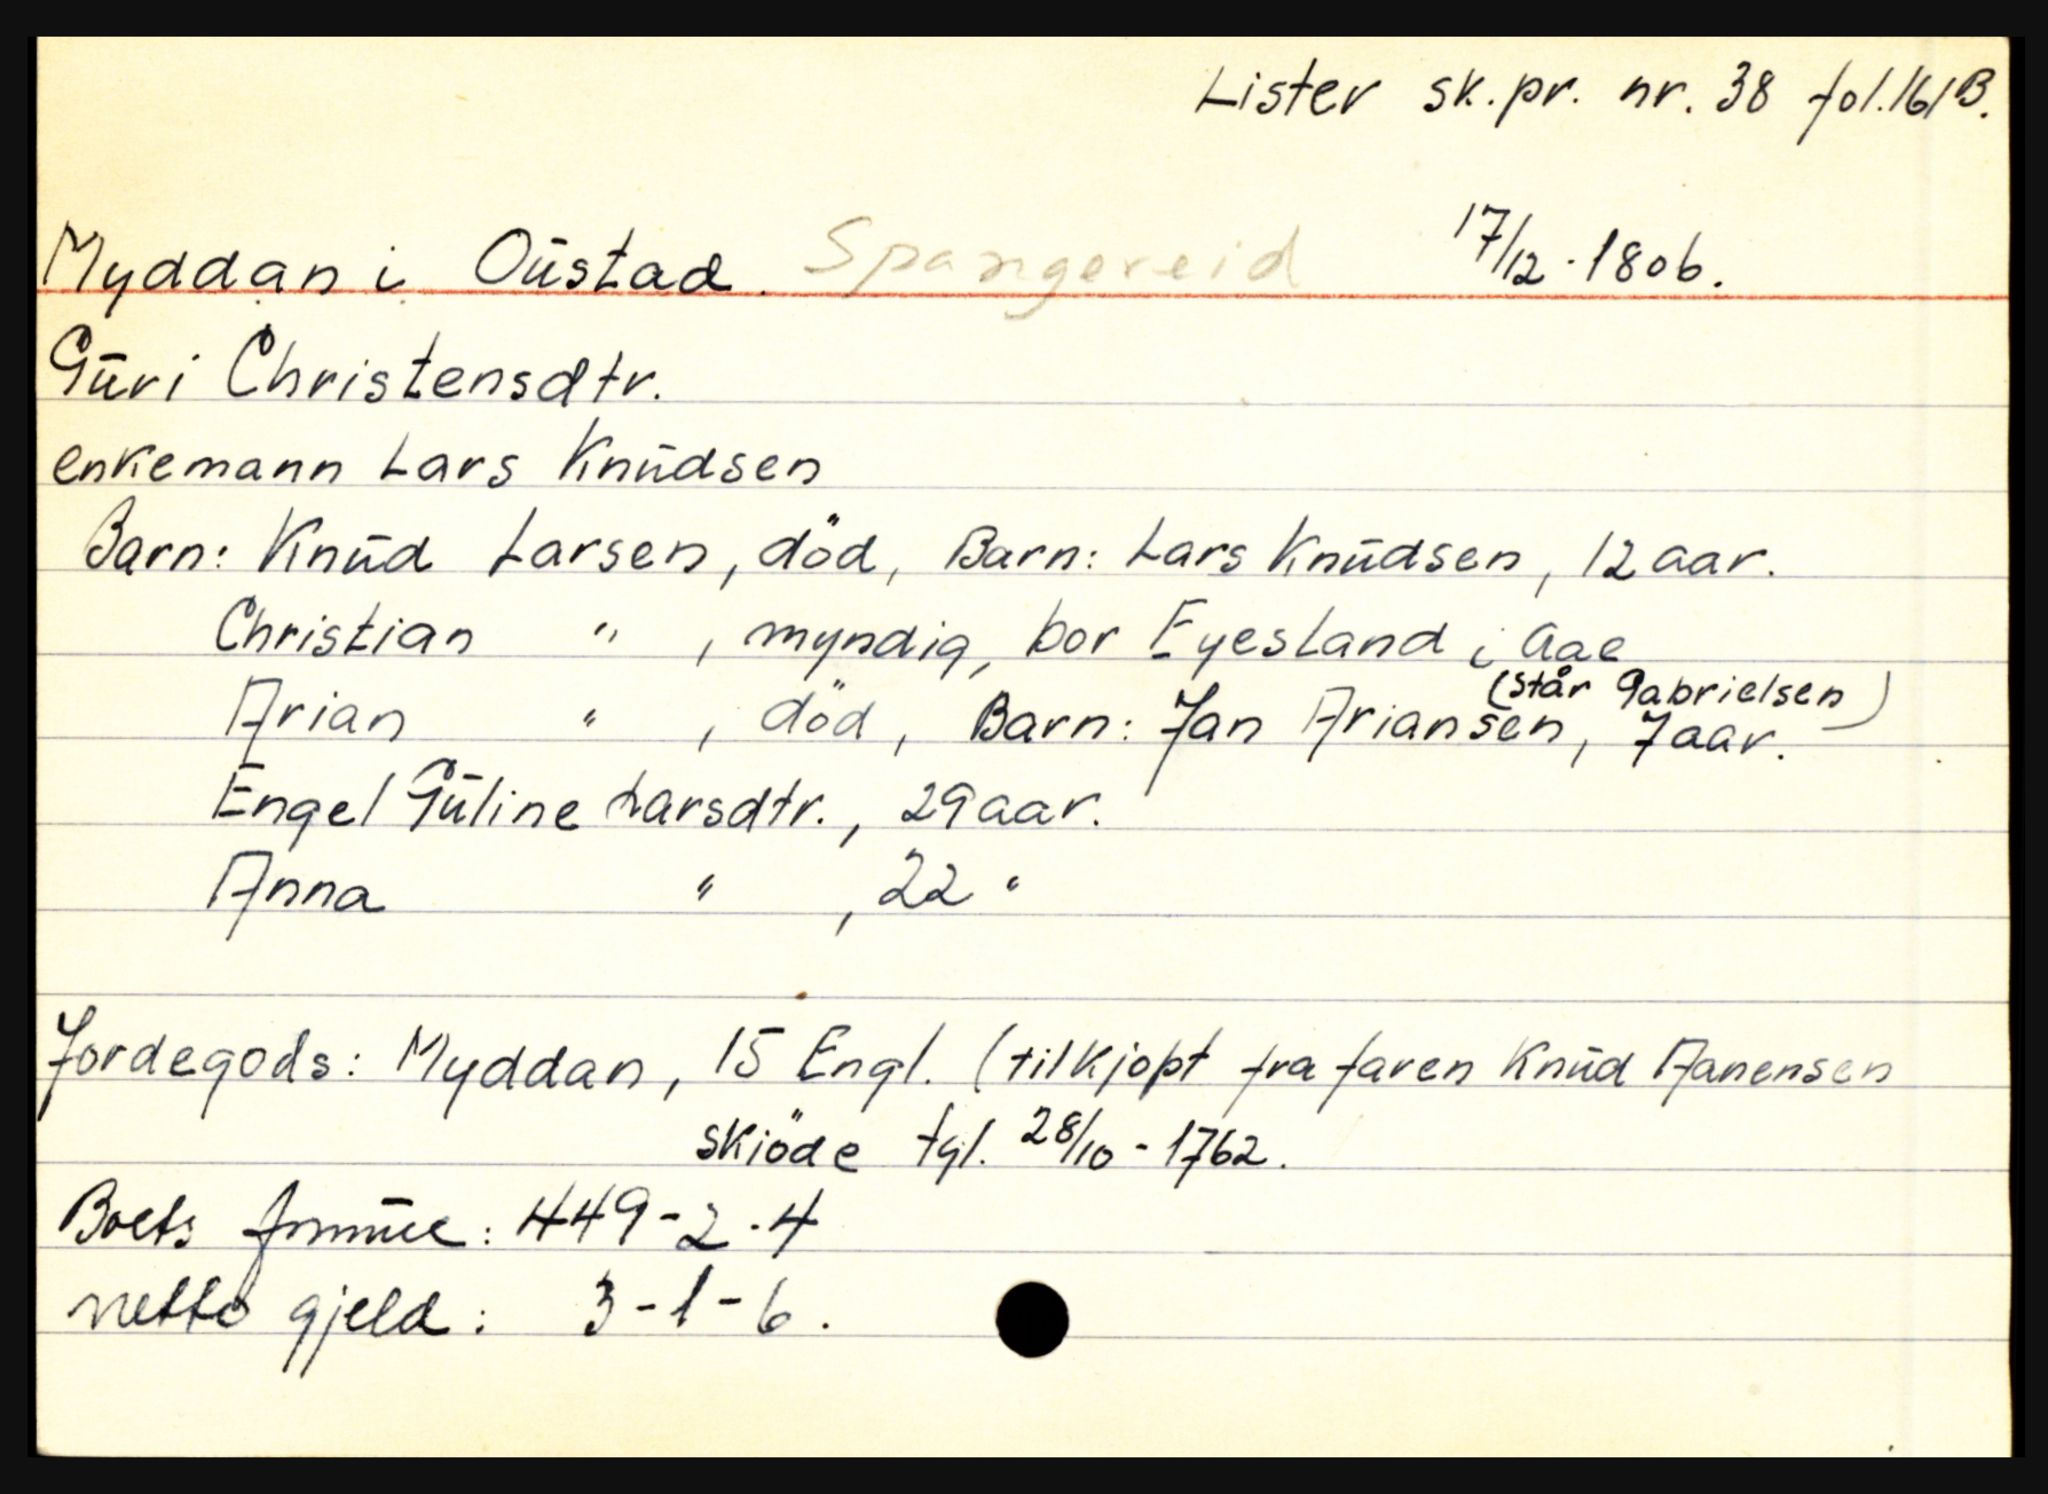 Lister sk.pr. nr. 38 fol.161B.
Myddan i Oūstad. Spangereid 17/12-1806.
Gūri Christensdtr.
enkemann Lars Knūdsen
Barn: Knūd Larsen, död, Barn: Lars Knūdsen, 12 aar.
Christian " , myndig, bor Eyesland i Aae
(står Gabrielsen)
Arian " , död, Barn: Jan Ariansen, 7 aar.
Engel Gūline Larsdtr., 29 aar.
Anna " , 22 "
Jordegods: Myddan, 15 Engl. (tilkjøpt fra faren Knūd Aanensen
skiöde tgl. 28/10-1762.
Boets formūe: 449-2-4
netto gjeld: 3-1-6.